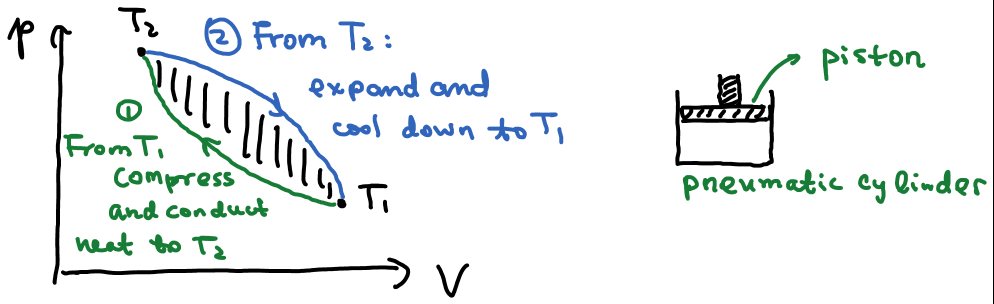 p
T₂
② From T₂:
expand and
cool down to T₁
①
From T₁
compress
and conduct
heat to T₂
T₁
V
piston
pneumatic cylinder